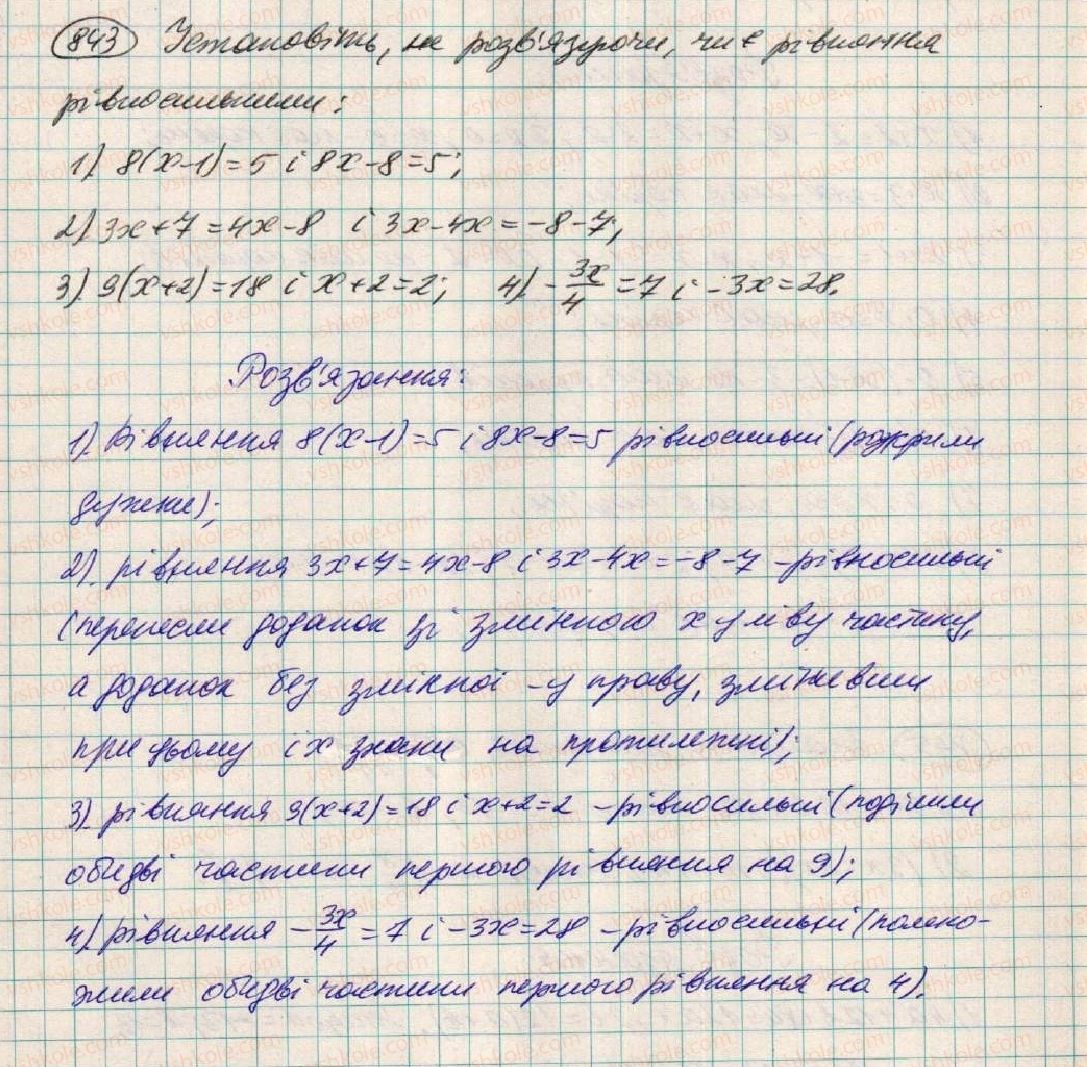 843 Установіть, не розв'язуючи, чи є рівняння
рівносильними:
1) 8(x-1)=5 і 8x-8=5;
2) 3x+7=4x-8 і 3x-4x=-8-7;
3) 9(x+2)=18 і x+2=2; 4) -3x/4=7 і -3x=28.
Розв'язання:
1) Рівняння 8(x-1)=5 і 8x-8=5 рівносильні (розкрили
дужки);
2) рівняння 3x+7=4x-8 і 3x-4x=-8-7 -рівносильні
(перенесли доданок зі змінною x у ліву частину,
а доданок без змінної -у праву, змінивши
при цьому їх знаки на протилежні);
3) рівняння 9(x+2)=18 і x+2=2 -рівносильні (поділили
обидві частини першого рівняння на 9);
4) рівняння -3x/4=7 і -3x=28 -рівносильні (помно-
жили обидві частини першого рівняння на 4).